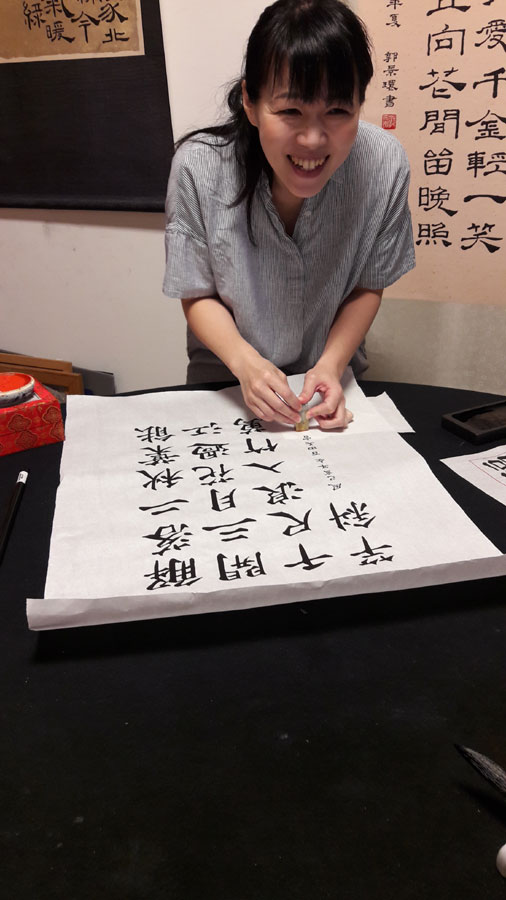 愛千金輕一笑
且向花間留晚照
年夏 郭景環書
解落二秋葉能
開三月花過江
千尺浪入竹萬
竿斜